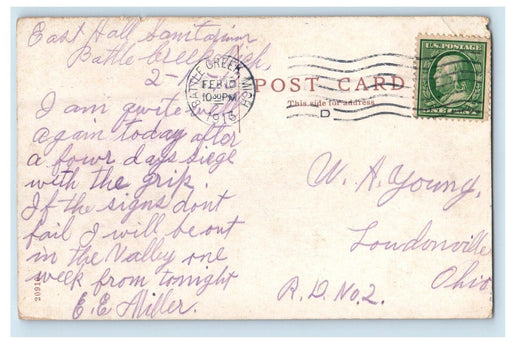 East Hall Sanitarium
Battle Creek Mich,
2-1
BATTLE CREEK, MICH
FEB 10
10 30 PM
1913
U.S. POSTAGE
POST CARD
This side for address
I am quite well
again today after
a four days siege
with the grip.
If the signs dont
fail I will be out
in the Valley one
week from tonight
E. E. Miller.
W. A. Young,
Loudonville
Ohio
R. D. No. 2.